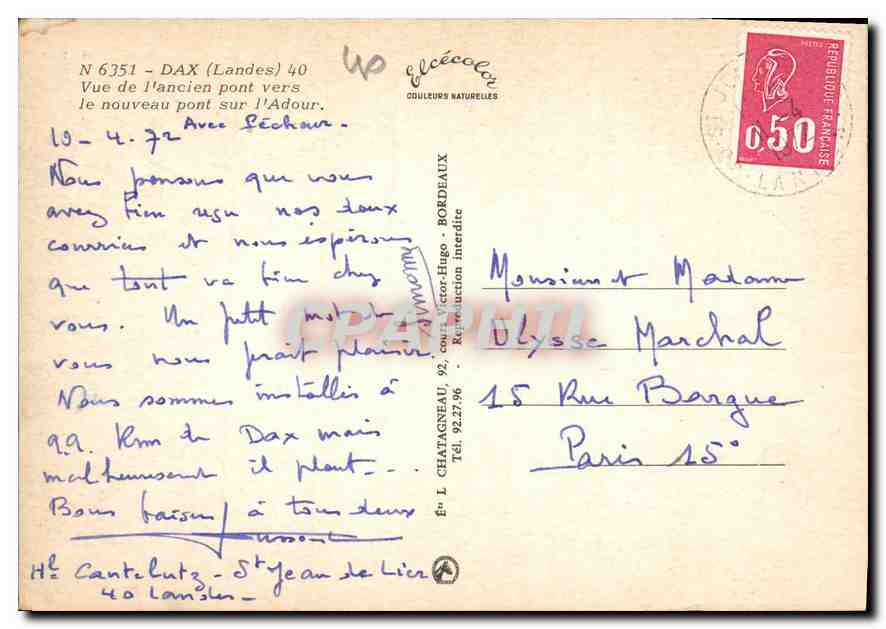 N 6351 - DAX (Landes) 40
Vue de l'ancien pont vers
le nouveau pont sur l'Adour.
40
Elcécolor
COULEURS NATURELLES
POSTES
RÉPUBLIQUE FRANÇAISE
0,50
10-4.72
Avec Séchaux.
Nous pensons que vous
avez bien reçu nos deux
courriers et nous espérons
que tout va bien chez
vous. Un petit mot de
vous nous frait plaisir.
Nous sommes installés à
22 Km de Dax mais
malheureusement il pleut...
Bons baisers à tous deux
Hl Cantelutz - St Jean de Lier
40 Landes -
Éts L CHATAGNEAU, 92, cours Victor-Hugo - BORDEAUX
Tél. 92.27.96 - Reproduction interdite
CPAPHIL
Monsieur et Madame
Ulysse Marchal
15 Rue Bargue
Paris 15°